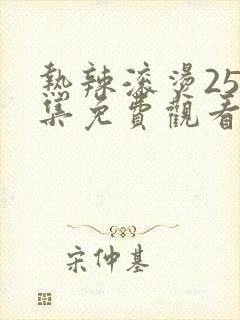 熱辣滾燙25
集免費觀看
宋仲基